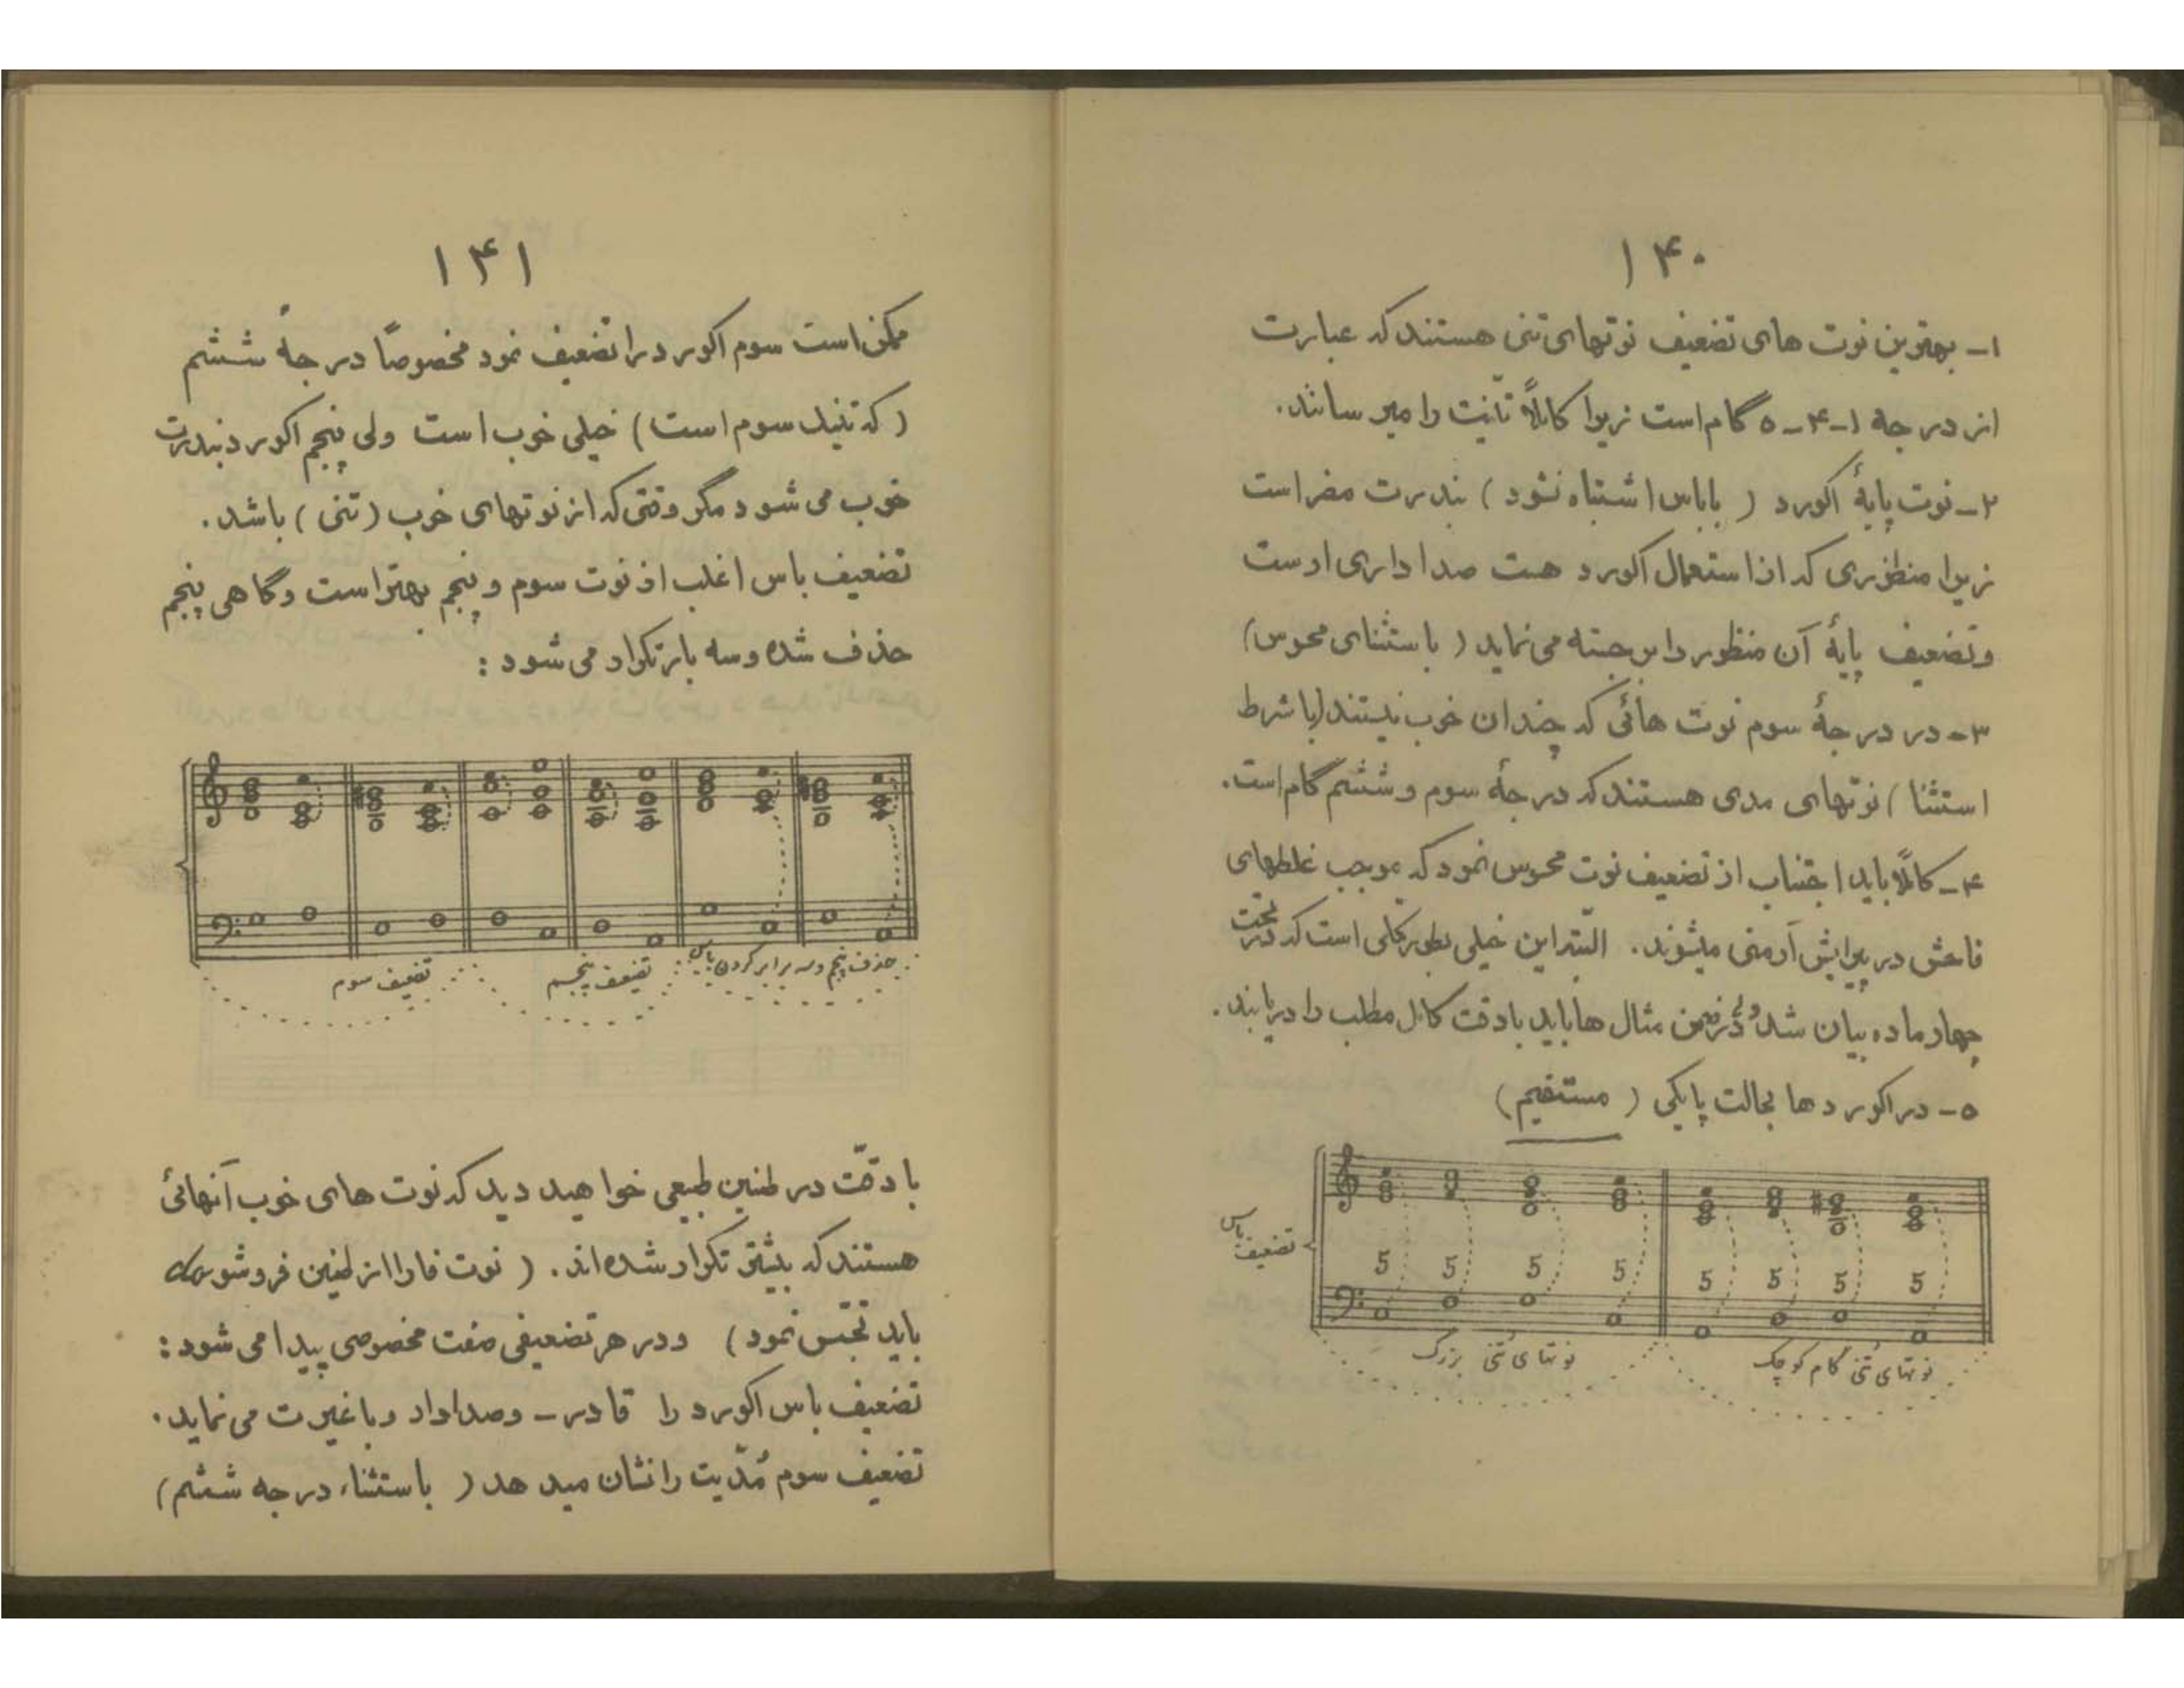 ۱۴۰
۱- بهترین نوت های تضعیف نوتهای تنی هستند که عبارت
از درجه ۱-۴-۵ گام است زیرا کاملاً تنیت را میرسانند.
۲- نوت پایهٔ اکورد ( با باس اشتباه نشود ) بندرت مضر است
زیرا منظوری که از استعمال اکورد هست صداداری اوست
و تضعیف پایهٔ آن منظور را برجسته می نماید ( باستثنای محسوس)
۳- در درجهٔ سوم نوت هائی که چندان خوب نیستند (با شرط
استثنا ) نوتهای مدی هستند که درجهٔ سوم و ششم گام است.
۴- کاملاً باید اجتناب از تضعیف نوت محسوس نمود که موجب غلطهای
فاحش در پیرایش آرمنی میشوند. البته این خیلی بطور کلی است که در تحت
چهار ماده بیان شد ولی در ضمن مثال ها باید با دقت کامل مطلب را دریابند.
۵- در اکوردها بحالت پایکی ( مستقیم )
تضعیف باس
5 5 5 5 5 5 5 5
نوتهای تنی بزرگ نوتهای تنی گام کوچک
۱۴۱
ممکن است سوم اکورد را تضعیف نمود مخصوصاً درجهٔ ششم
( که تنیک سوم است ) خیلی خوب است ولی پنجم اکورد بندرت
خوب می شود مگر وقتی که از نوتهای خوب ( تنی ) باشد.
تضعیف باس اغلب از نوت سوم و پنجم بهتر است و گاهی پنجم
حذف شده و سه بار تکرار می شود :
تضعیف سوم تضعیف پنجم حذف پنجم و سه برابر کردن باس
با دقّت در طنین طبیعی خواهید دید که نوت های خوب آنهائی
هستند که بیشتر تکرار شده اند. ( نوت فا را از طنین فروشو do
باید تجسّس نمود ) و در هر تضعیفی صفت مخصوصی پیدا می شود :
تضعیف باس اکورد را قادر - وصدادار و با غیرت می نماید.
تضعیف سوم مُدّیت را نشان میدهد ( باستثناء درجه ششم)